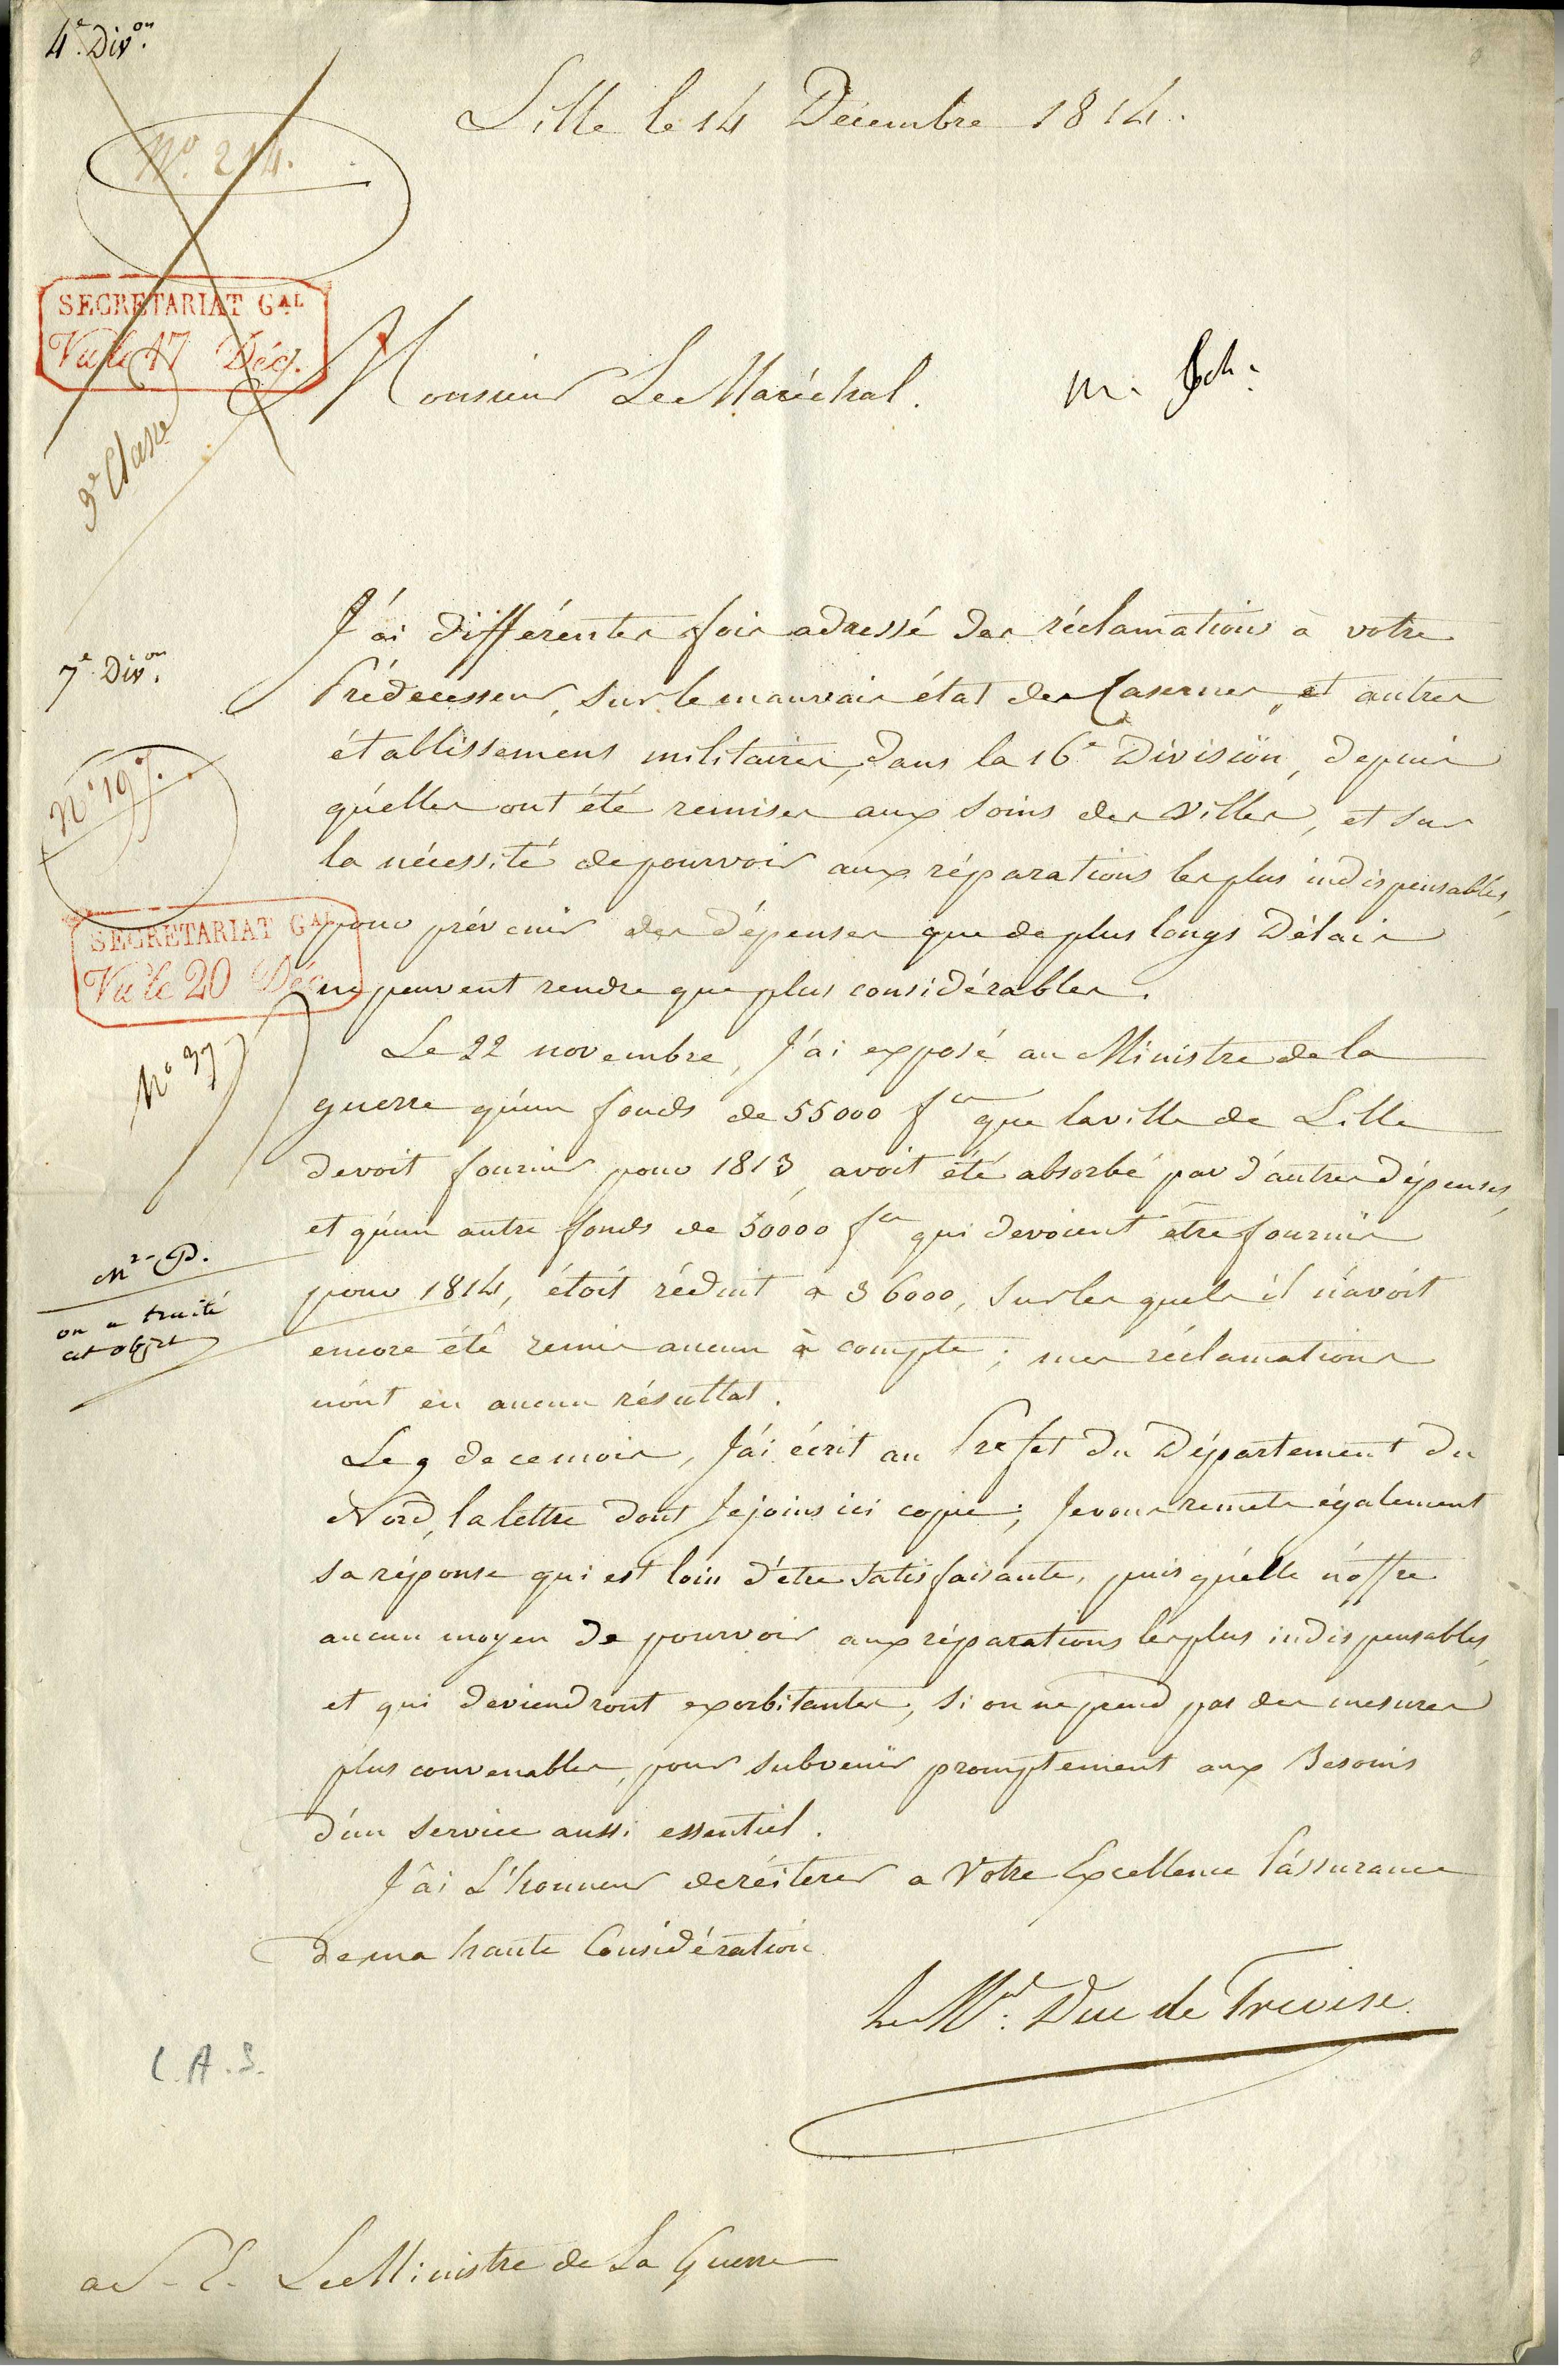 4e. Divon.
Lille le 14 Décembre 1814.
No. 214.
SECRETARIAT GAL
Vu le 17 Déc.
Monsieur Le Maréchal.
3e Classe
J'ai différentes fois adressé des réclamations à votre
Prédecesseur, sur le mauvais état des Casernes, et autres
établissemens militaires, dans la 16e Division, depuis
qu'elles ont été remises aux soins des Villes, et sur
la nécessité de pourvoir aux réparations les plus indispensables,
pour prévenir des dépenses que de plus longs Délais
ne peuvent rendre que plus considérables.
7e Divon.
No 197.
SECRETARIAT GAL
Vu le 20 Déc
No 37
Le 22 novembre, J'ai exposé au Ministre de la
guerre qu'un fonds de 55000 fcs que la ville de Lille
devoit fournir pour 1813, avoit été absorbé par d'autres dépenses,
et qu'un autre fonds de 50000 fcs qui devoient être fournis
pour 1814, étoit réduit a 36000, sur les quels il n'avoit
encore été remis aucun à compte; mes réclamations
n'ont eu aucun résultat.
Mr. P.
on a traité
cet objet
Le 9 de ce mois, J'ai écrit au Prefet du Département du
Nord, la lettre dont Je joins ici copie; Je vous remets également
sa réponse qui est loin d'être satisfaisante, puis qu'elle n'offre
aucun moyen de pourvoir aux réparations les plus indispensables,
et qui deviendront exorbitantes, si on ne prend pas des mesures
plus convenables, pour subvenir promptement aux Besoins
d'un service aussi essentiel.
J'ai L'honneur de réiterer a Votre Excellence l'assurance
de ma haute Considération
Le Mal. Duc de Trevise.
L.A.S.
a S. E. Le Ministre de La Guerre